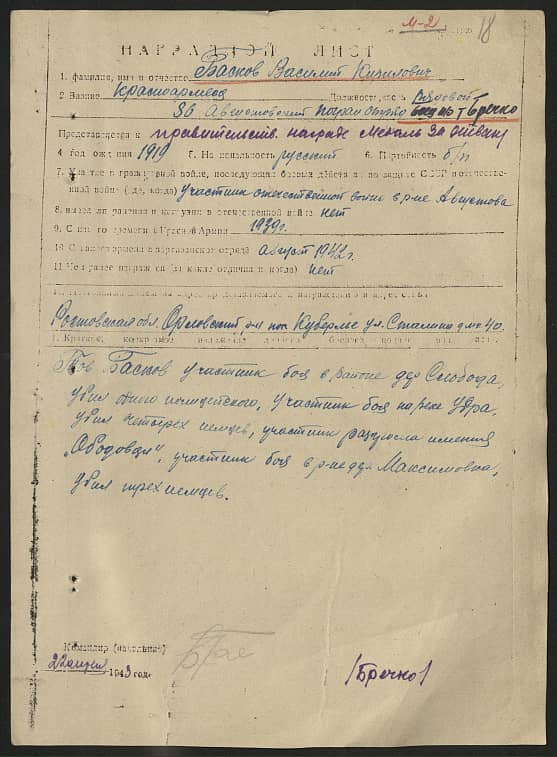 М-2
18
НАГРАДНОЙ ЛИСТ
1. фамилия, имя и отчество Басков Василий Кириллович
2 Звание красноармеец Должность, часть рядовой
86 Августовский погран отряд Бречко
Представляется к правительств. награде Медаль За отвагу
4 год рождения 1919 5. Национальность русский 6. Партийность б/п
7. Участие в гражданской войне, последующих боевых действиях по защите СССР и отечественной войне (где, когда) участник отечественной войны в р-не Августова
8. имеет ли ранения и контузии в отечественной войне нет
9. С какого времени в Красной Армии 1939г.
10 С какого времени в партизанском отряде август 1942г.
11 Чем ранее награжден (за какие отличия и когда) нет
Ростовская обл. Орловский р-н пос. Куберле ул. Сталина дом 40.
Тов Басков участник боя в районе дер Слобода,
убил одного полицейского, участник боя на реке Убра,
убил четырех немцев, участник разгрома имения
„Ободовцы", участник боя в р-не дер. Максимовка,
убил трех немцев.
Командир (начальник)
22 1943 года
/Бречко/